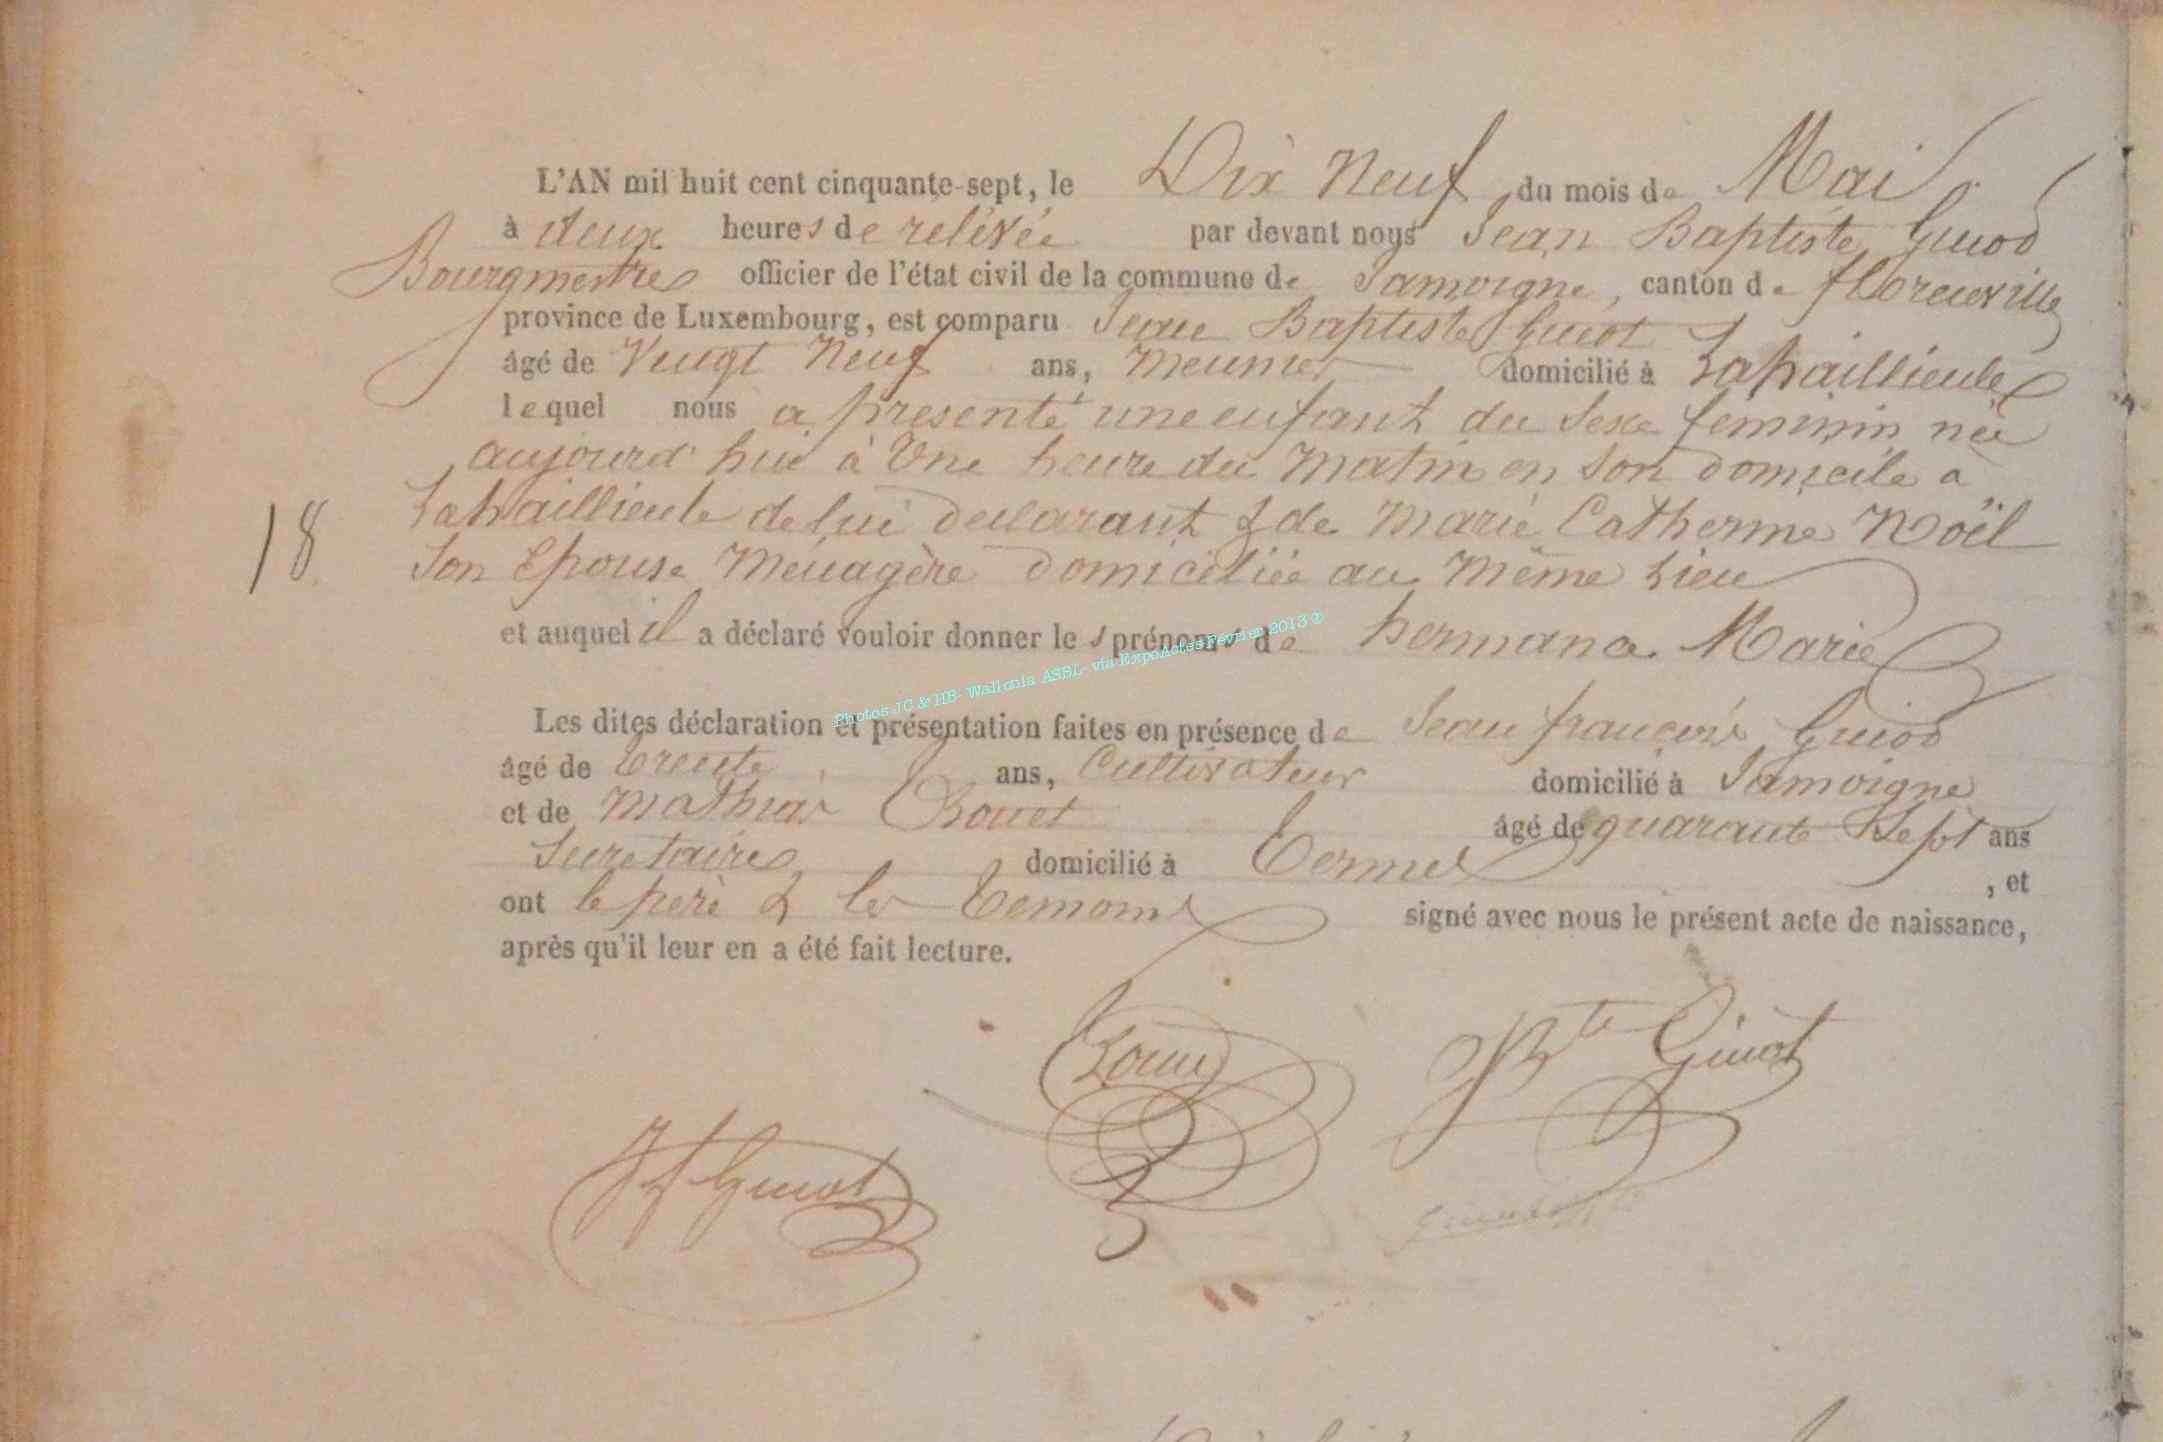 L'AN mil huit cent cinquante-sept, le Dix Neuf du mois de Mai
à deux heures de relévée par devant nous Jean Baptiste Guiod
Bourgmestre officier de l'état civil de la commune de Jamoigne, canton de florenville
province de Luxembourg, est comparu Jean Baptiste Guiot
âgé de Vingt Neuf ans, Meunier domicilié à Lahaillieule
lequel nous a présenté une enfant du Sexe feminin née
aujourd'hui à Une heure du Matin en Son domicile à
18 Lahaillieule de lui declarant & de Marie Catherine Noël
Son Epouse Ménagère domiciliée au Même Lieu
et auquel il a déclaré vouloir donner les prénoms de hermance Marie
Photos JC & HB- Wallonia ASBL- via ExpoActes Février 2013 ©
Les dites déclaration et présentation faites en présence de Jean françois Guiod
âgé de trente ans, Cultivateur domicilié à Jamoigne
et de Mathias Rouet âgé de quarante Sept ans
Secretaire domicilié à Termes, et
ont le père & les temoins signé avec nous le présent acte de naissance,
après qu'il leur en a été fait lecture.
Rouet JBte Guiot
JF Guiot